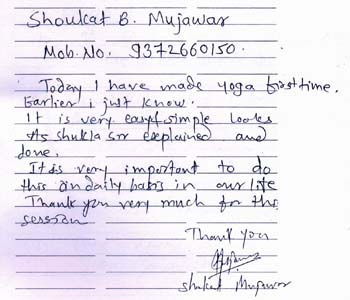 Shoukat B. Mujawar
Mob. No. 9372660150.
Today I have made yoga first time.
Earlier i just know.
It is very easy & simple looks
As Shukla Sir explained and
done.
It is very important to do
this on daily basis in our life
Thank you very much for this
session
Thank you
Shukat Mujawar